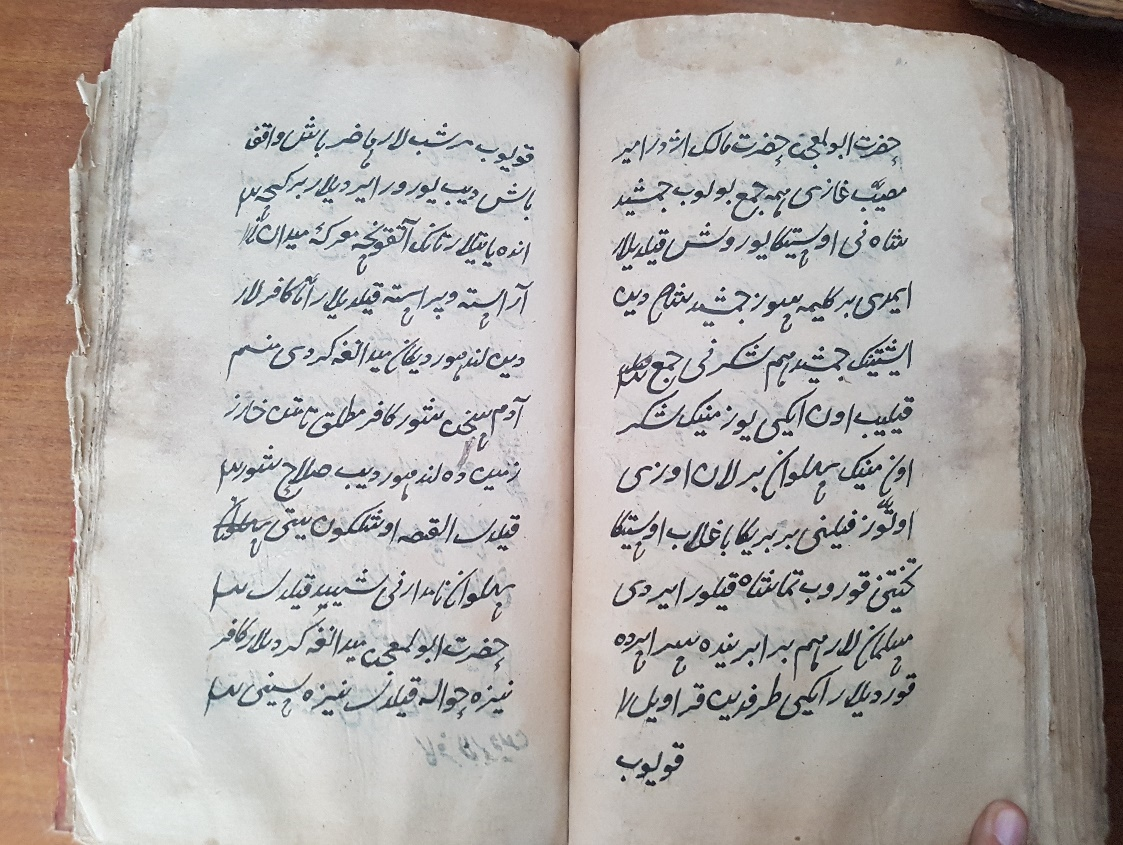 حضرت ابوالمعجن حضرت مالک اژدر امیر
مصیّب غازی همه جمع بولوب جمشید
شاه نی اوستیکا یوروش قیلدیلار
ایمدی بر کلیمه سوز جمشید شاه دین
ایشیتینک جمشید هم لشکر نی جمع
قیلیب اون ایکی یوز مینک لشکر
اون مینک پهلوان برلان اوزی
اولتوز فیلنی بر بریکا باغلاب اوستیکا
تختنی قوروب تماشاه قیلور ایردی
مسلمان لار هم برابرینده سرابرده
قوردیلار ایکی طرفدین قراویل لا
قویوب
قویوب هر شب لار حاضر باش واقف
باش دیب یورور ایردیلار بر کیچه
انده یاتیلار تانک آتقونچه معرکهٔ میدان
آراسته و پیراسته قیلدیلار کافرلار
دین لندهور دیکان میدانغه کردی منم
آدم سخن شور کافر مطلق
زمین ده لندهور دیب صلاح شور
قیلدی القصه اوشلکون یتی
پهلوان نامدارنی شهید قیلدی
حضرت ابوالمعجن میدانغه کردیلار کافر
نیزه حواله قیلدی نیزه سینی